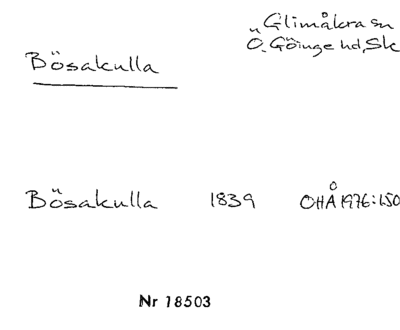 Glimåkra sn
Ö. Göinge hd, Sk
Bösakulla
Bösakulla 1839 OHÅ 1976:150
Nr 18503